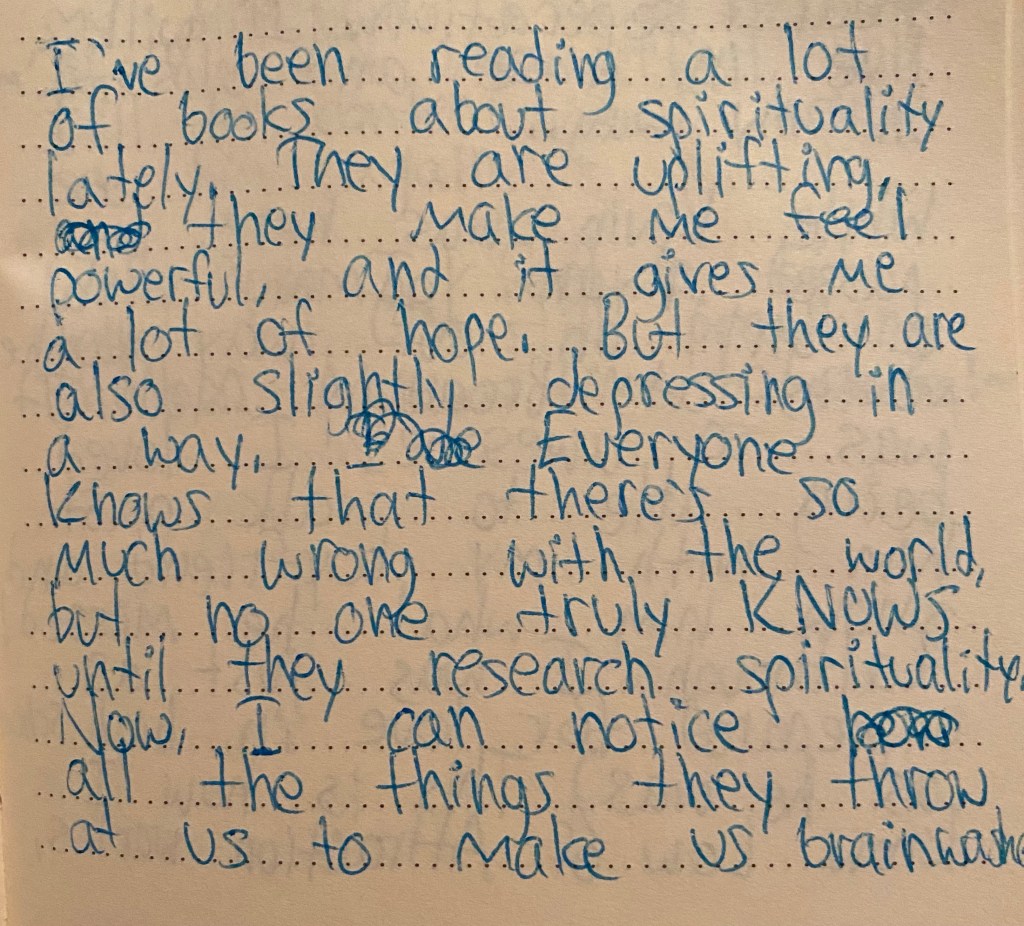 I've been reading a lot
of books about spirituality
lately. They are uplifting,
they make me feel
powerful, and it gives me
a lot of hope. But they are
also slightly depressing in
a way. Everyone
knows that there's so
much wrong with the world,
but no one truly KNOWS
until they research spirituality.
Now, I can notice
all the things they throw
at us to make us brainwashe